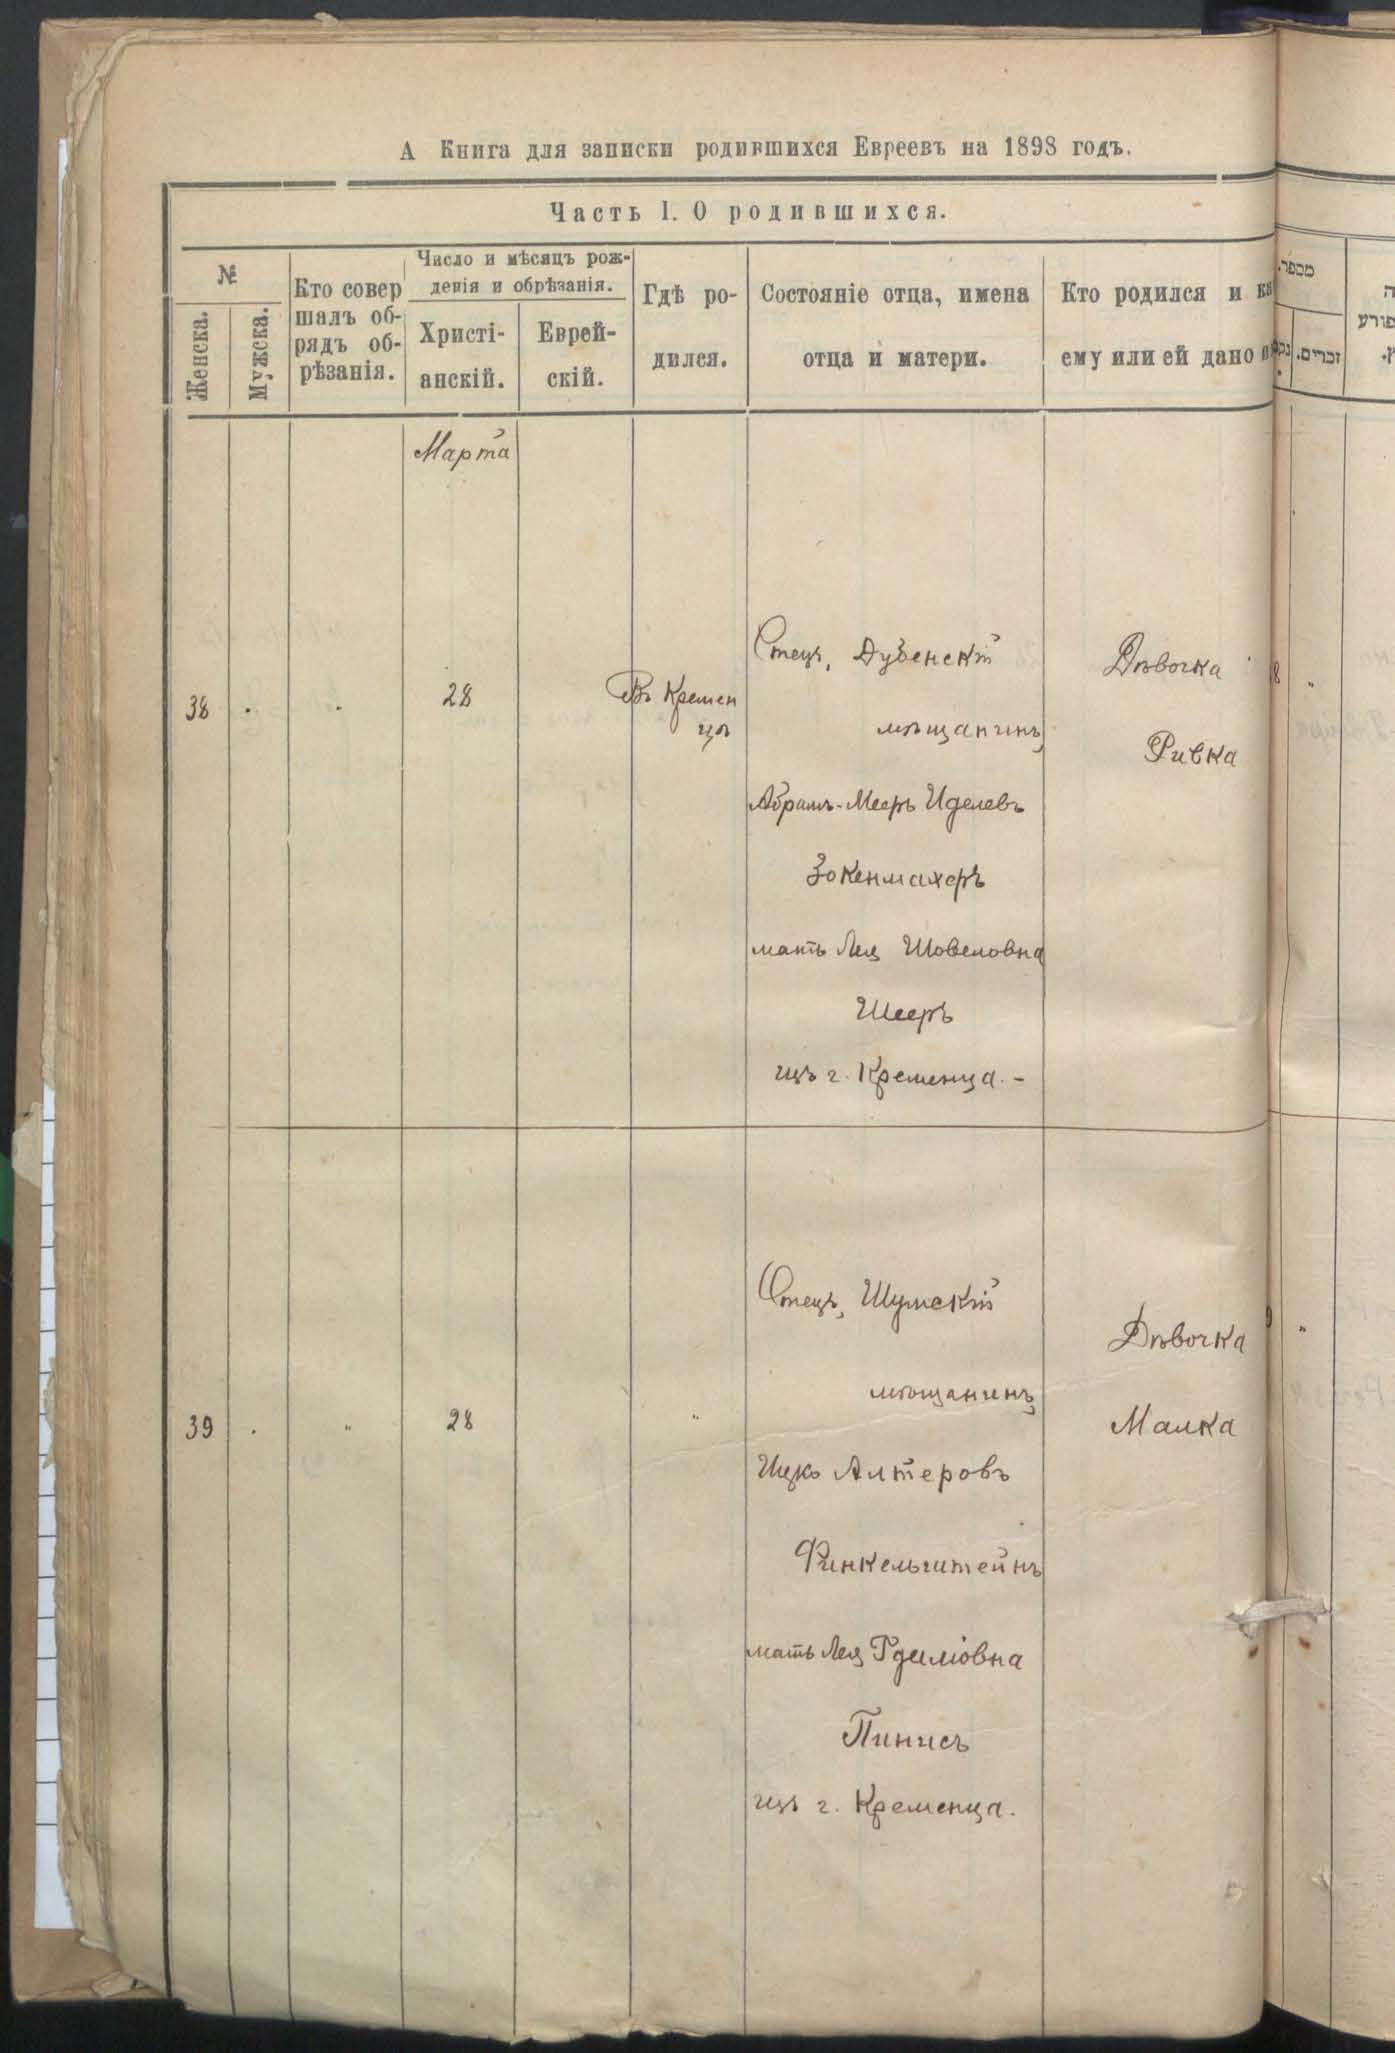 А Книга для записки родившихся Евреевъ на 1898 годъ.
Часть I. О родившихся.
№
Женска.
Мужска.
Кто совер
шалъ об-
рядъ об-
рѣзанія.
Число и мѣсяцъ рож-
денія и обрѣзанія.
Христі-
анскій.
Еврей-
скій.
Гдѣ ро-
дился.
Состояніе отца, имена
отца и матери.
Кто родился и ка
ему или ей дано и
מספר.
זכרים.
Марта
38 . . 28
Въ Кремен
цѣ
Отецъ, Дубенскій
мѣщанинъ,
Абрамъ-Мееръ Иделевъ
Зокенмахеръ
мать Лея Шовеловна
Шееръ
изъ г. Кременца. -
Дѣвочка
Ривка
39 . " 28 "
Отецъ, Шумскій
мѣщанинъ,
Ицко Алтеровъ
Финкельштейнъ
мать Лея
Пинисъ
изъ г. Кременца.
Дѣвочка
Малка